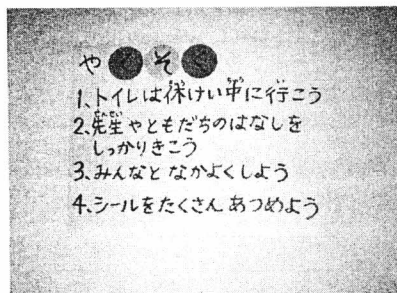 やくそく
1、トイレは休けい中に行こう
2、先生やともだちのはなしを
しっかりきこう
3、みんなとなかよくしよう
4、シールをたくさんあつめよう